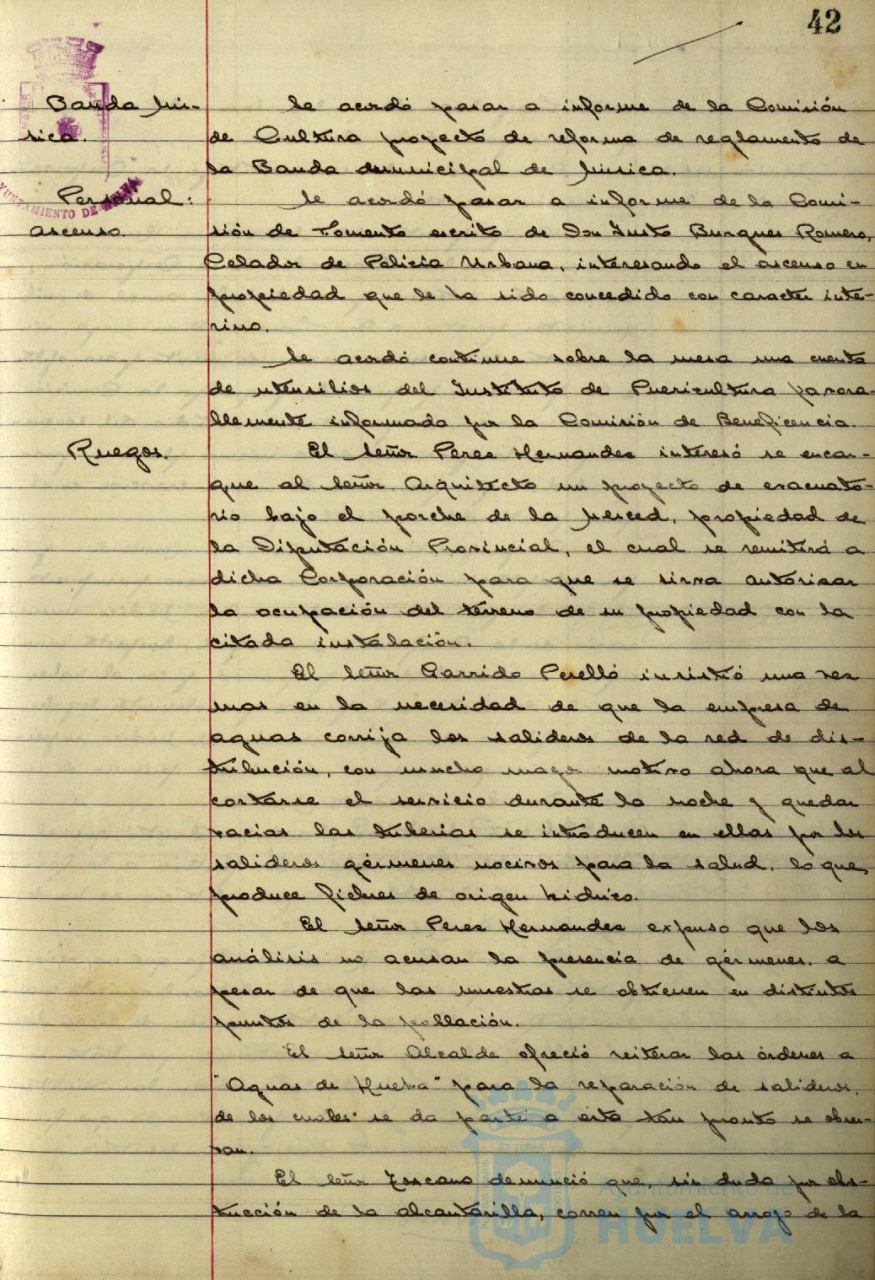 42
Banda Mú-
sica.
Se acordó pasar a informe de la Comisión
de Cultura proyecto de reforma de reglamento de
la Banda Municipal de Música.
Personal:
ascenso.
Se acordó pasar a informe de la Comi-
sión de Fomento escrito de Don Justo Burgues Romero,
Celador de Policia Urbana, interesando el ascenso en
propiedad que le ha sido concedido con caracter inte-
rino.
Se acordó continue sobre la mesa una cuenta
de utensilios del Instituto de Puericultura favora-
blemente informada por la Comisión de Beneficencia.
Ruegos.
El Señor Perez Hernandez interesó se encar-
gue al Señor Arquitecto un proyecto de evacuato-
rio bajo el porche de la Merced, propiedad de
la Diputación Provincial, el cual se remitirá a
dicha Corporación para que se sirva autorizar
la ocupación del terreno de su propiedad con la
citada instalación.
El Señor Garrido Perelló insistió una vez
mas en la necesidad de que la empresa de
aguas corrija los salideros de la red de dis-
tribución, con mucho mayor motivo ahora que al
cortarse el servicio durante la noche y quedar
vacias las tuberias se introducen en ellas por los
salideros gérmenes nocivos para la salud, lo que
produce fiebres de origen hidrico.
El Señor Perez Hernandez expuso que los
análisis no acusan la presencia de gérmenes, a
pesar de que las muestras se obtienen en distintos
puntos de la población.
El Señor Alcalde ofreció reiterar las órdenes a
"Aguas de Huelva" para la reparación de salideros,
de los cuales se da parte a ésta tan pronto se obser-
van.
El Señor Toscano denunció que, sin duda por obs-
trucción de la alcantarilla, corren por el arroyo de la
AYUNTAMIENTO DE HUELVA
Ayuntamiento de
HUELVA